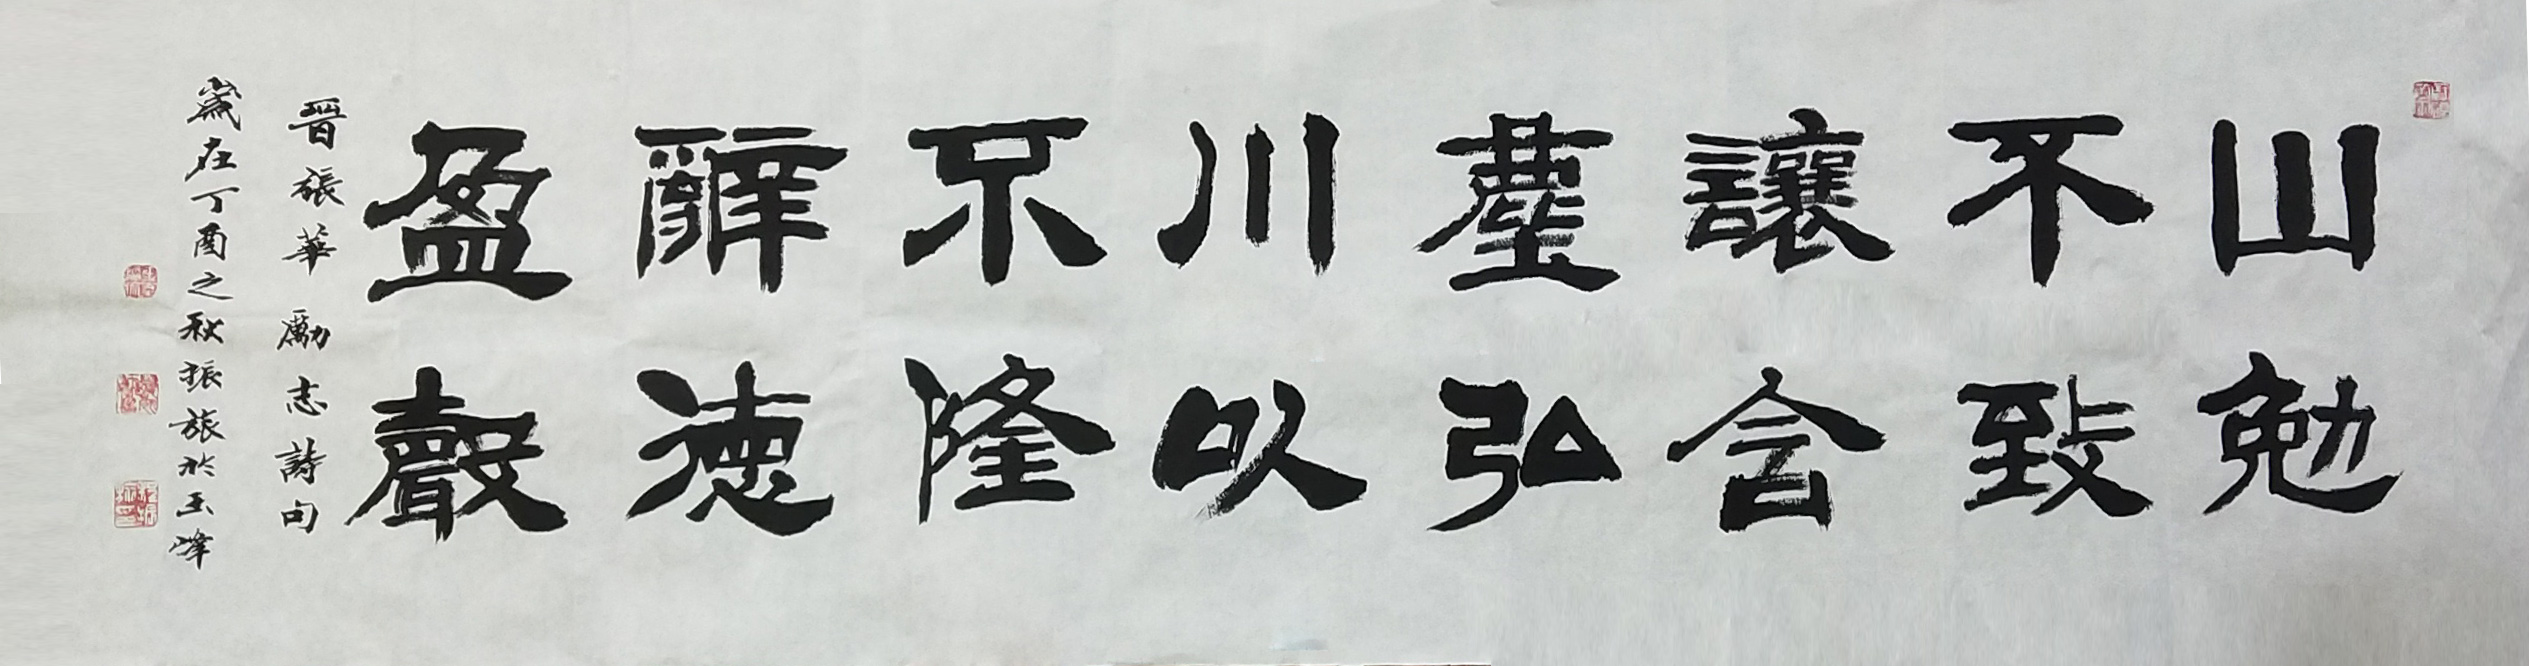 山不讓塵川不辭盈
勉致含弘以隆德聲
晉張華勵志詩句
歲在丁酉之秋振旅於玉峰